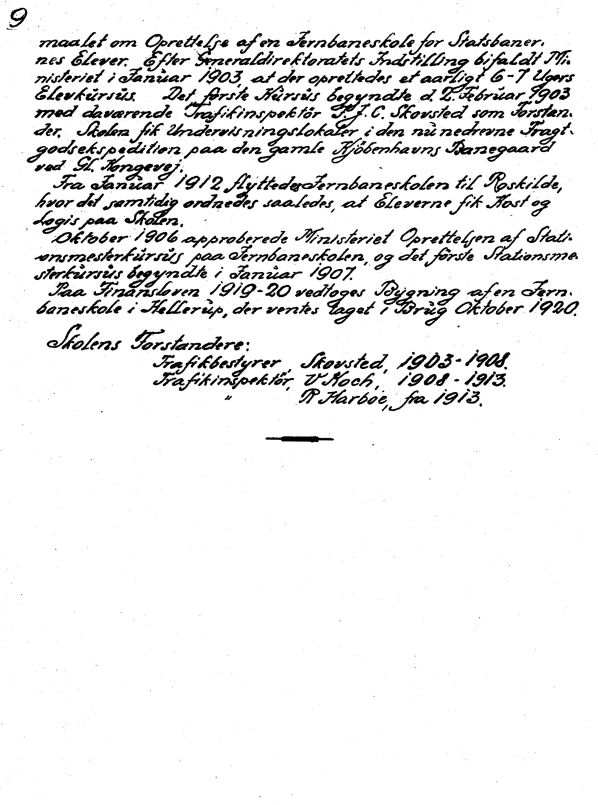 9
maalet om Oprettelse af en Jernbaneskole for Statsbaner-
nes Elever. Efter Generaldirektoratets Indstilling bifaldt Mi-
nisteriet i Januar 1903 at der oprettedes et aarligt 6-7 Ugers
Elevkursus. Det første Kursus begyndte d. 2. Februar 1903
med daværende Trafikinspektör J. C. Skovsted som Forstan-
der. Skolen fik Undervisningslokaler i den nu nedrevne Fragt-
godsekspedition paa den gamle Kjøbenhavns Banegaard
ved Gl. Kongevej.
Fra Januar 1912 flyttedes Jernbaneskolen til Roskilde,
hvor det samtidig ordnedes saaledes, at Eleverne fik Kost og
Logis paa Skolen.
Oktober 1906 approberede Ministeriet Oprettelsen af Stati-
onsmesterkursus paa Jernbaneskolen, og det første Stationsme-
sterkursus begyndte i Januar 1907.
Paa Finansloven 1919-20 vedtoges Bygning af en Jern-
baneskole i Hellerup, der ventes taget i Brug Oktober 1920.
Skolens Forstandere:
Trafikbestyrer, Skovsted, 1903-1908.
Trafikinspektör, V Koch, 1908-1913.
" P Harboe, fra 1913.